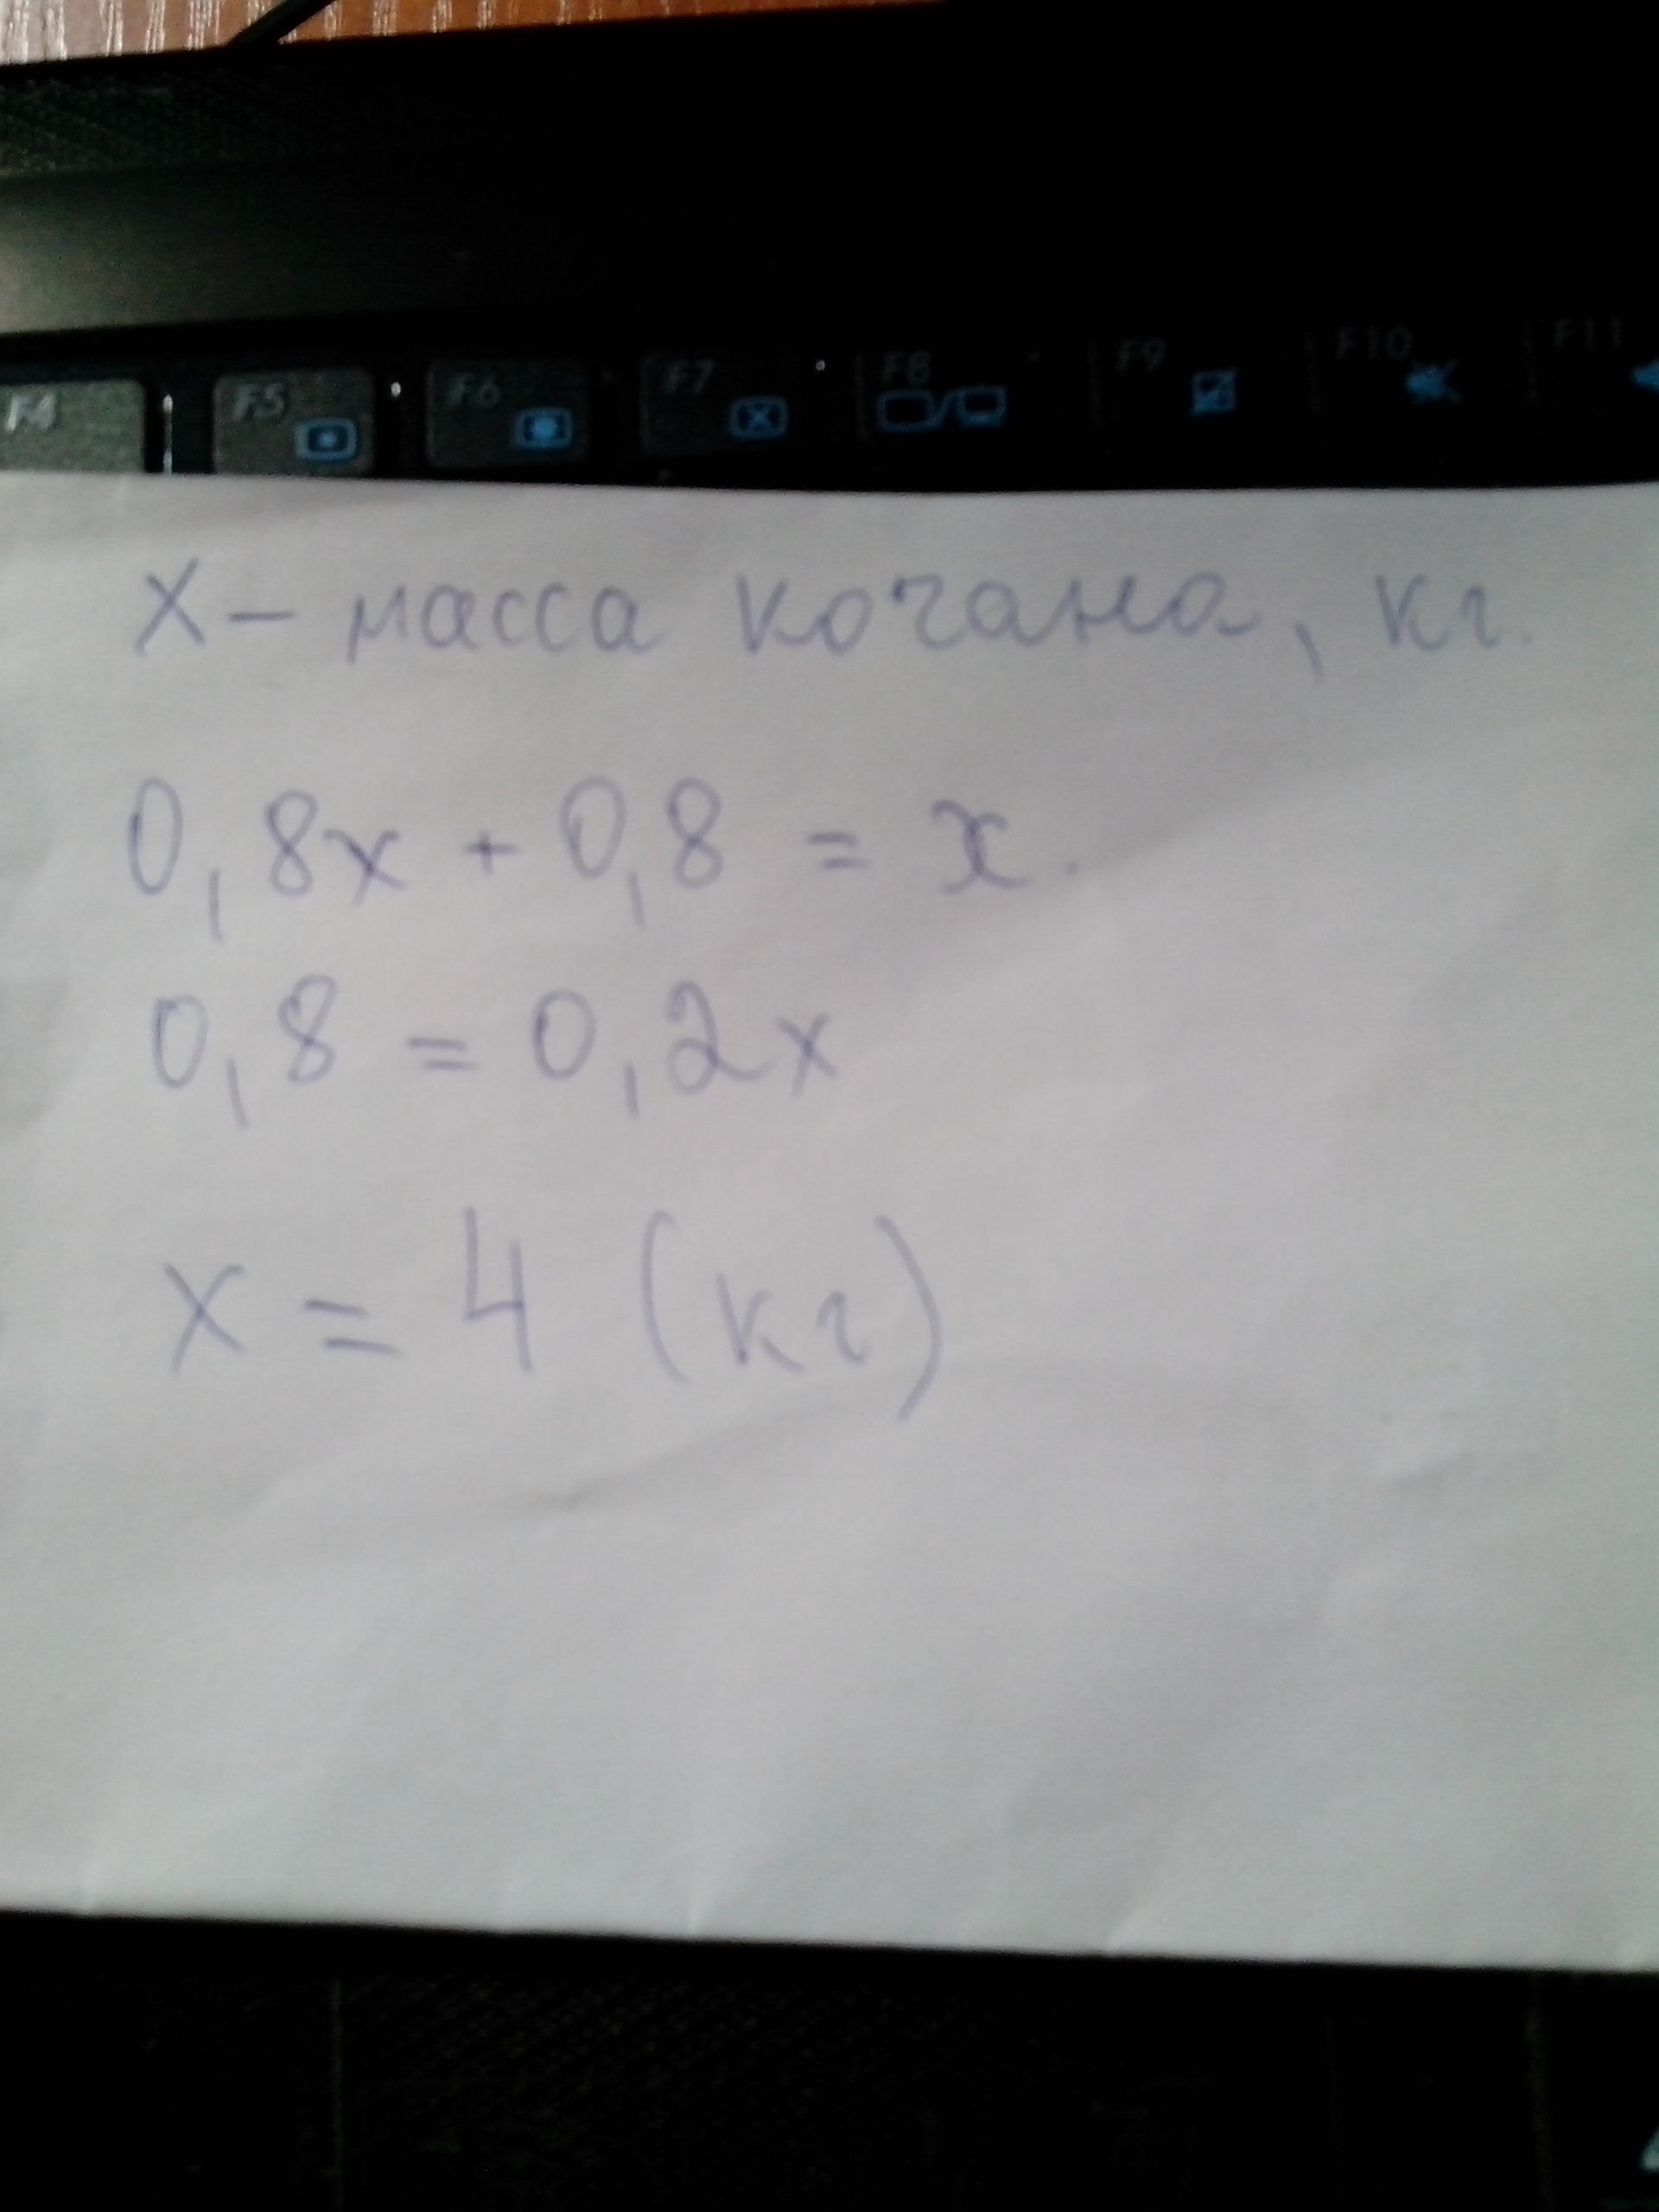 F4 F5 F6 F7 F8 F9 F10 F11
x – масса кочана, кг.
0,8x + 0,8 = x.
0,8 = 0,2x
x = 4 (кг)